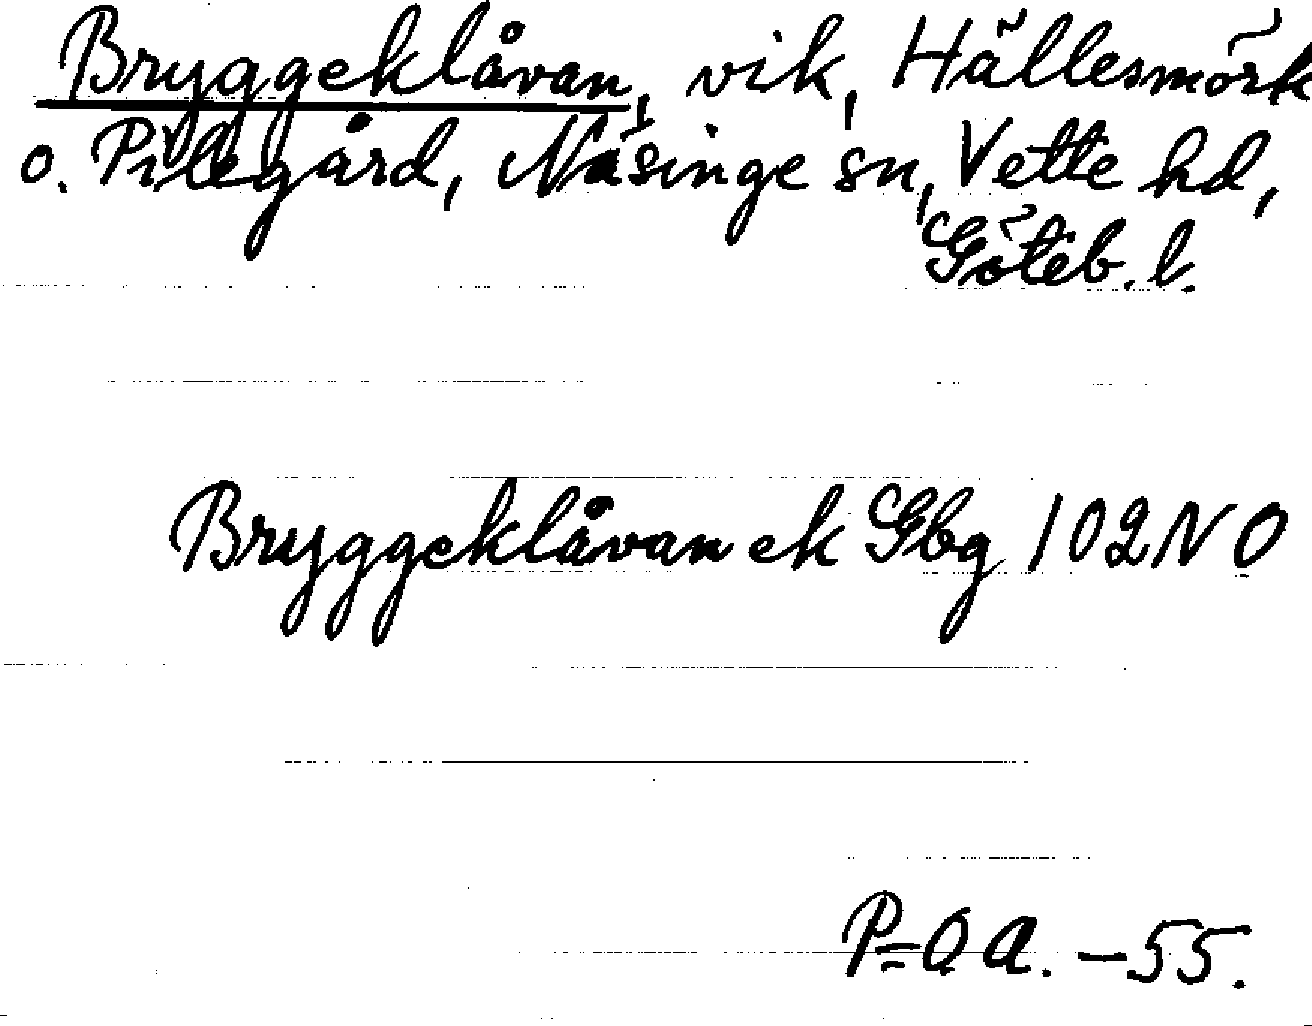 Bryggeklåvan, vik, Hällesmörk
o. Pilegård, Näsinge sn, Vette hd,
Göteb. l.
Bryggeklåvan ek Gbg 102 NO
P=O A. -55.